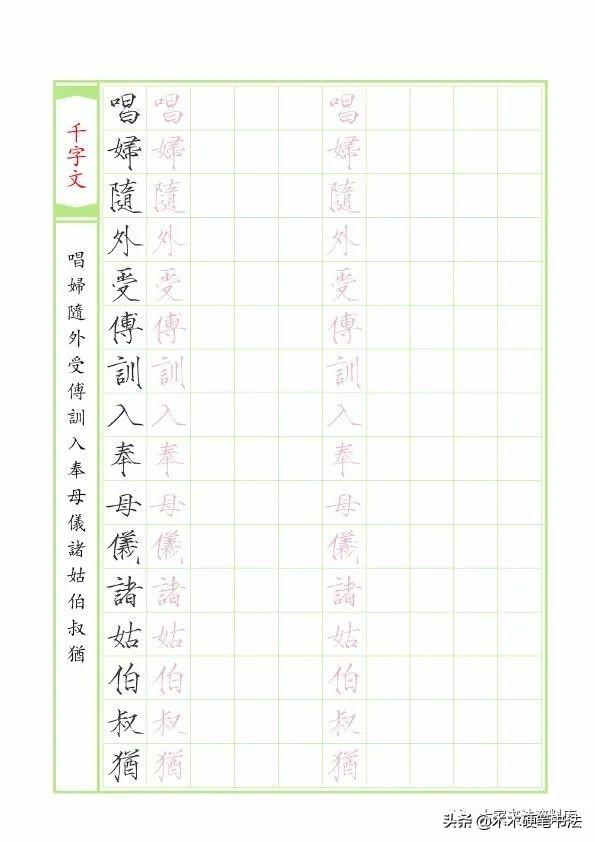 千字文
唱婦隨外受傅訓入奉母儀諸姑伯叔猶
唱 唱 唱
婦 婦 婦
隨 隨 隨
外 外 外
受 受 受
傅 傅 傅
訓 訓 訓
入 入 入
奉 奉 奉
母 母 母
儀 儀 儀
諸 諸 諸
姑 姑 姑
伯 伯 伯
叔 叔 叔
猶 猶 猶
头条 @木木硬笔书法